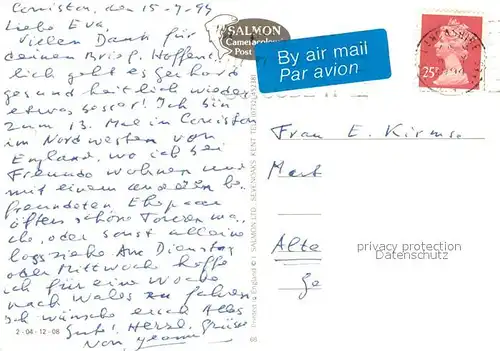 Coniston, den 15-7-94
Liebe Eva,
Vielen Dank für
deinen Brief. Hoffent-
lich geht es Gerhard
gesundheitlich wieder
etwas besser! Ich bin
zum 13. Mal in Coniston
im Nordwesten von
England, wo ich bei
Freunde wohnen und
mit einem anderen be-
freundeten Ehepaar
öfters schöne Touren ma-
che, oder sonst alleine
losziehe. Am Dienstag
oder Mittwoch hoffe
ich für eine Woche
nach Wales zu fahren
Ich wünsche euch Alles
Gute! Herzl. Grüsse
von
2-04-12-08
SALMON
Cameracolour
Post
By air mail
Par avion
25
Printed in England © J. SALMON LTD., SEVENOAKS, KENT. TEL: 0732 452381
Frau E. Kirmse
Alte
privacy protection
Datenschutz
www.